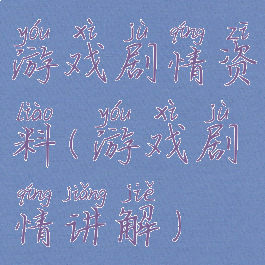 yóu xì jù qíng zī
游戏剧情资
liào yóu xì jù
料(游戏剧
qíng jiǎng jiě
情讲解)